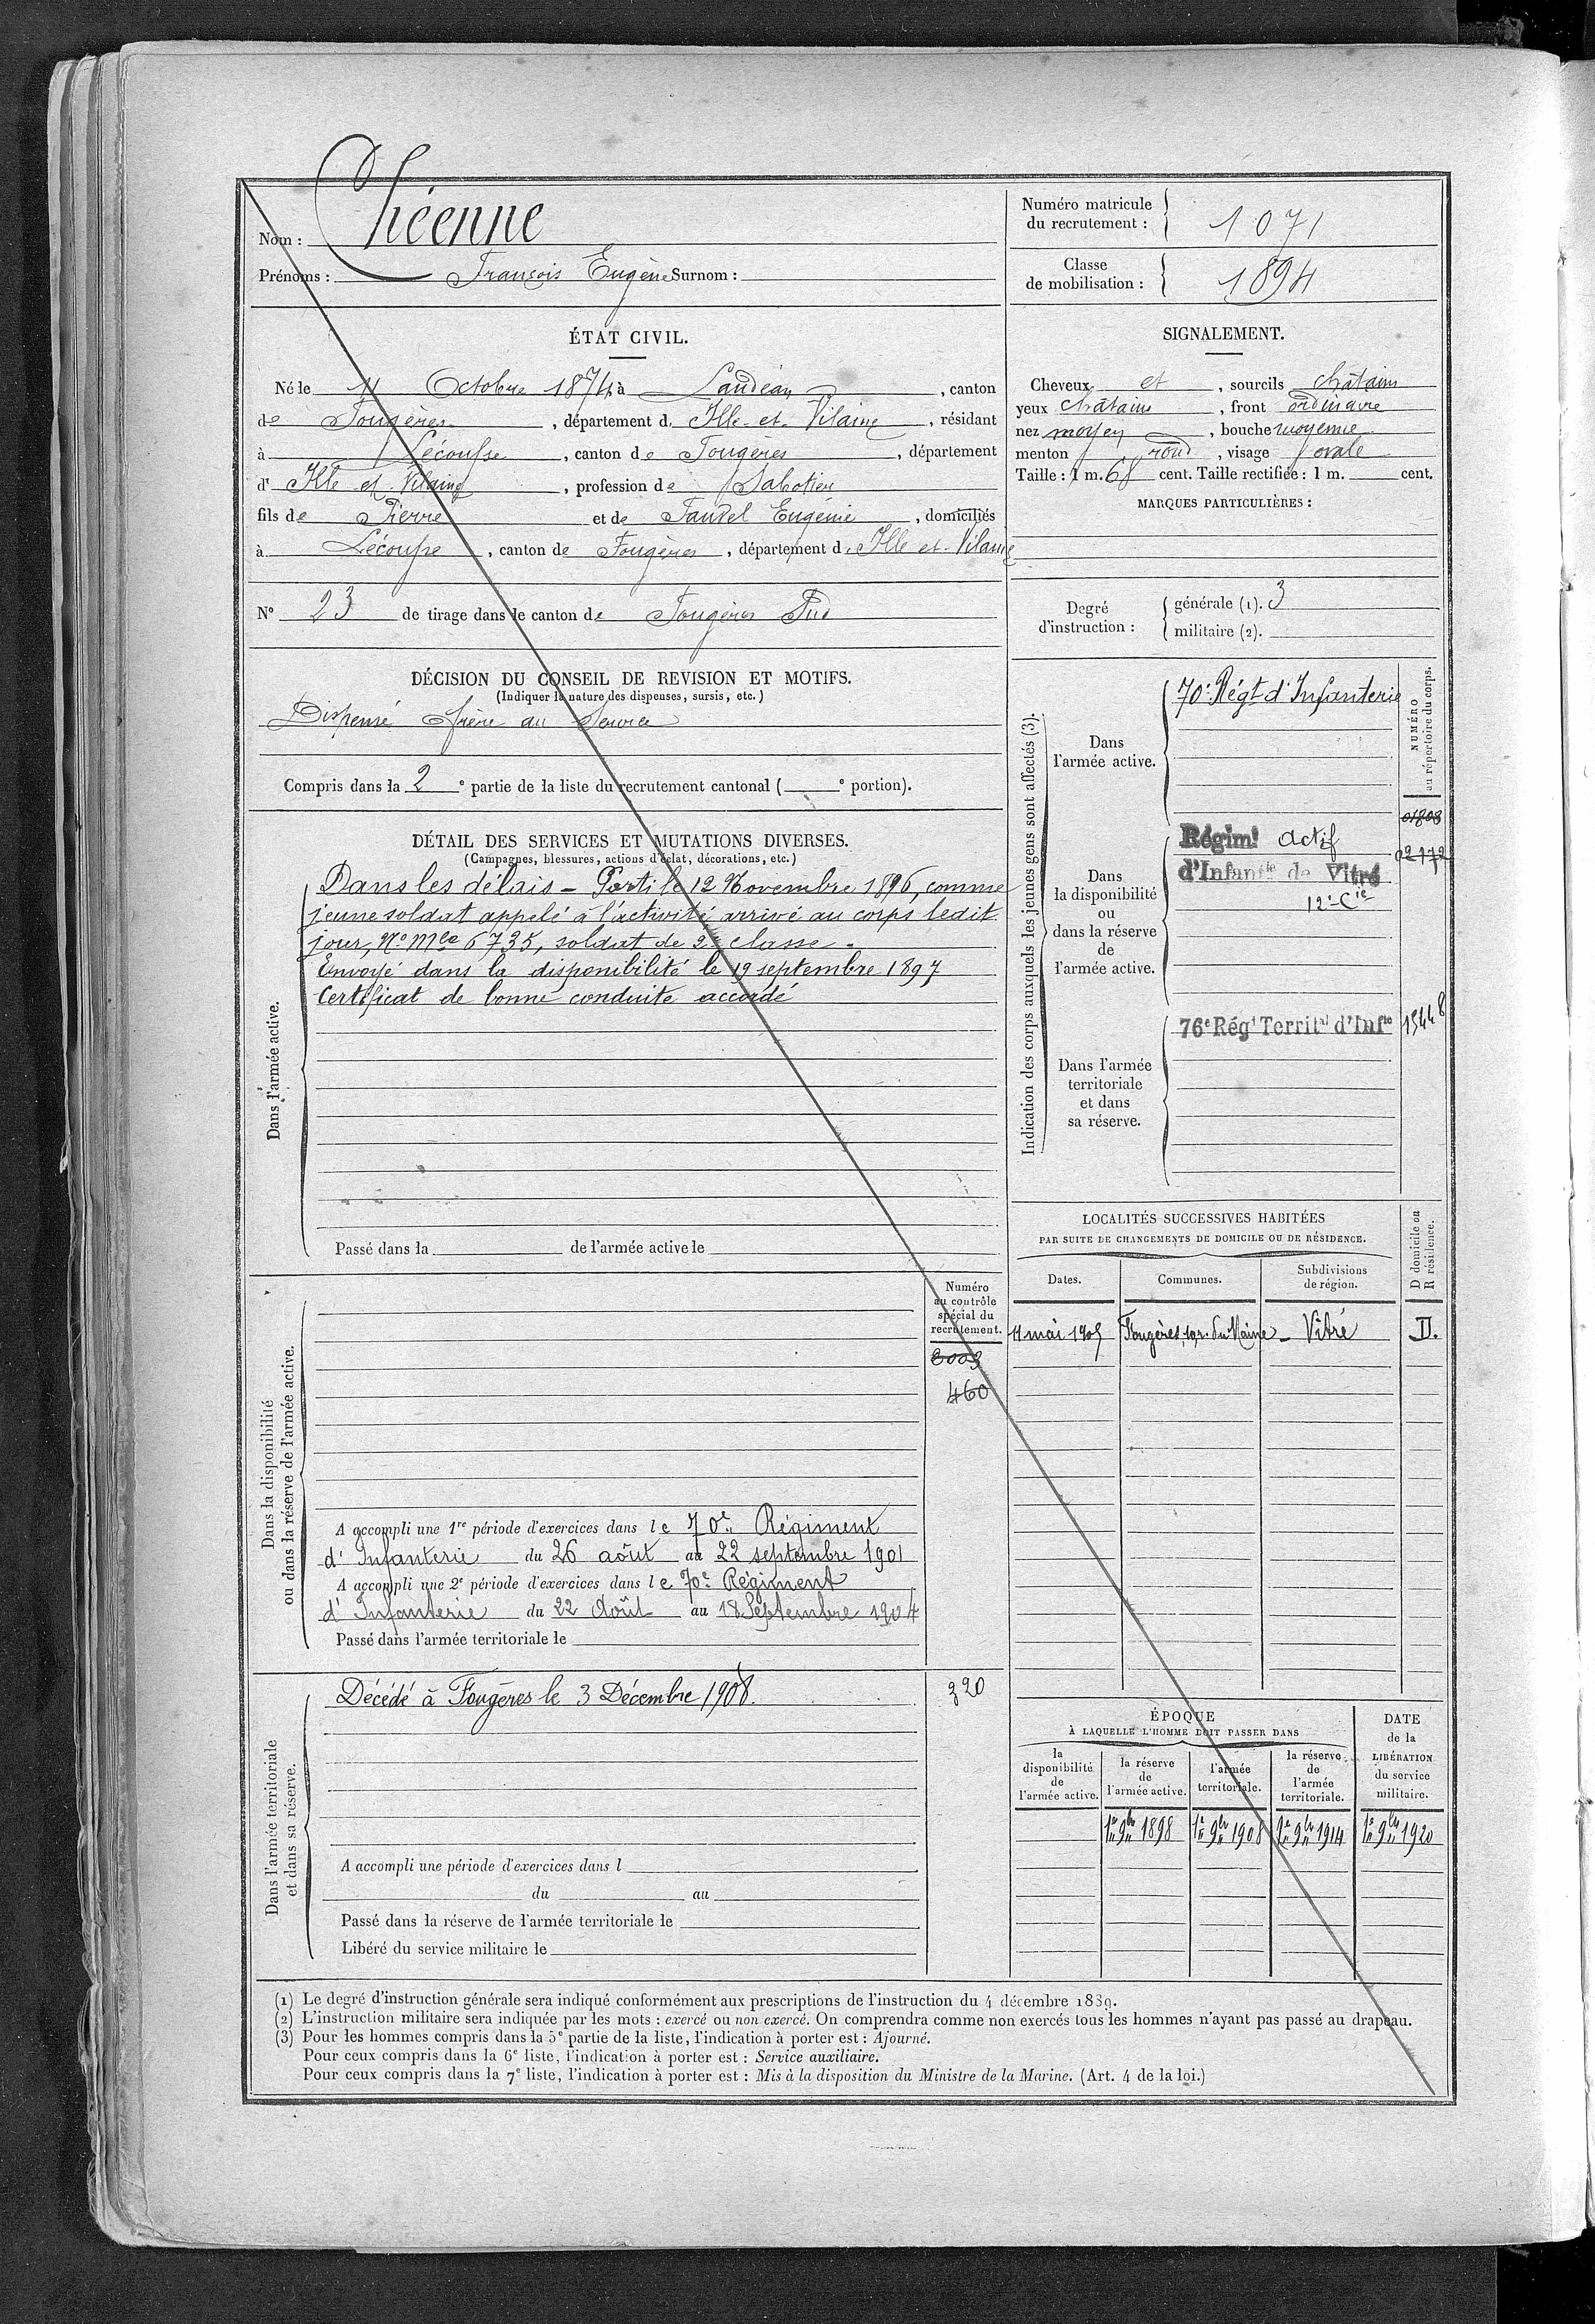 Nom : Théenne
Prénoms : François Eugène Surnom :
Numéro matricule du recrutement : 1071
Classe de mobilisation : 1894
ÉTAT CIVIL.
Né le 11 Octobre 1874 à Landéan, canton
de Fougères, département d. Ille-et-Vilaine, résidant
à Lécousse, canton de Fougères, département
d' Ille et Vilaine, profession de Sabotier
fils de Pierre et de Fautrel Eugénie, domiciliés
à Lécousse, canton de Fougères, département d. Ille et-Vilaine
N° 23 de tirage dans le canton de Fougères Sud
SIGNALEMENT.
Cheveux et, sourcils châtains
yeux châtains, front ordinaire
nez moyen, bouche moyenne
menton rond, visage ovale
Taille : 1 m. 68 cent. Taille rectifiée : 1 m. cent.
MARQUES PARTICULIÈRES :
Degré d'instruction : générale (1). 3
militaire (2).
DÉCISION DU CONSEIL DE REVISION ET MOTIFS.
(Indiquer la nature des dispenses, sursis, etc.)
Dispensé frère au service
Compris dans la 2e partie de la liste du recrutement cantonal ( e portion).
DÉTAIL DES SERVICES ET MUTATIONS DIVERSES.
(Campagnes, blessures, actions d'éclat, décorations, etc.)
Dans l'armée active.
Dans les délais - Parti le 12 Novembre 1896, comme
jeune soldat appelé à l'activité arrivé au corps ledit
jour, N° Mle 6735, soldat de 2e classe.
Envoyé dans la disponibilité le 19 septembre 1897
Certificat de bonne conduite accordé
Passé dans la de l'armée active le
Indication des corps auxquels les jeunes gens sont affectés (3).
NUMÉRO au répertoire du corps.
Dans l'armée active.
70e Régt d'Infanterie
Dans la disponibilité ou dans la réserve de l'armée active.
01808
Régimt actif
02172
d'Infanie de Vitré
12e Cie
Dans l'armée territoriale et dans sa réserve.
76e Régt Territal d'Infie 15448
LOCALITÉS SUCCESSIVES HABITÉES
PAR SUITE DE CHANGEMENTS DE DOMICILE OU DE RÉSIDENCE.
Dates. Communes. Subdivisions de région. D domicile ou R résidence.
11 mai 1905 Fougères, r. du Maine - Vitré D.
Dans la disponibilité ou dans la réserve de l'armée active.
Numéro au contrôle spécial du recrutement.
3003
460
A accompli une 1re période d'exercices dans le 70e Régiment
d'Infanterie du 26 août au 22 septembre 1901
A accompli une 2e période d'exercices dans le 70e Régiment
d'Infanterie du 22 Août au 18 Septembre 1904
Passé dans l'armée territoriale le
Dans l'armée territoriale et dans sa réserve.
Décédé à Fougères le 3 Décembre 1908. 320
A accompli une période d'exercices dans l
du au
Passé dans la réserve de l'armée territoriale le
Libéré du service militaire le
ÉPOQUE
À LAQUELLE L'HOMME DOIT PASSER DANS
DATE de la LIBÉRATION du service militaire.
la disponibilité de l'armée active. la réserve de l'armée active. l'armée territoriale. la réserve de l'armée territoriale.
1er 9bre 1898 1er 9bre 1908 1er 9bre 1914 1er 9bre 1920
(1) Le degré d'instruction générale sera indiqué conformément aux prescriptions de l'instruction du 4 décembre 1889.
(2) L'instruction militaire sera indiquée par les mots : exercé ou non exercé. On comprendra comme non exercés tous les hommes n'ayant pas passé au drapeau.
(3) Pour les hommes compris dans la 5e partie de la liste, l'indication à porter est : Ajourné.
Pour ceux compris dans la 6e liste, l'indication à porter est : Service auxiliaire.
Pour ceux compris dans la 7e liste, l'indication à porter est : Mis à la disposition du Ministre de la Marine. (Art. 4 de la loi.)